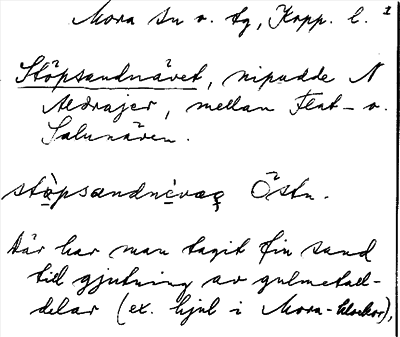 Mora sn o. tg, Kopp. l. 1
Stöpsandnävet, nipudde N
Aldrajer, mellan Flat- o.
Salunären.
stöpsandnèvaę Östn.
Här har man tagit fin sand
till gjutning av gulmetall-
delar (ex. hjul i Mora-klockor),